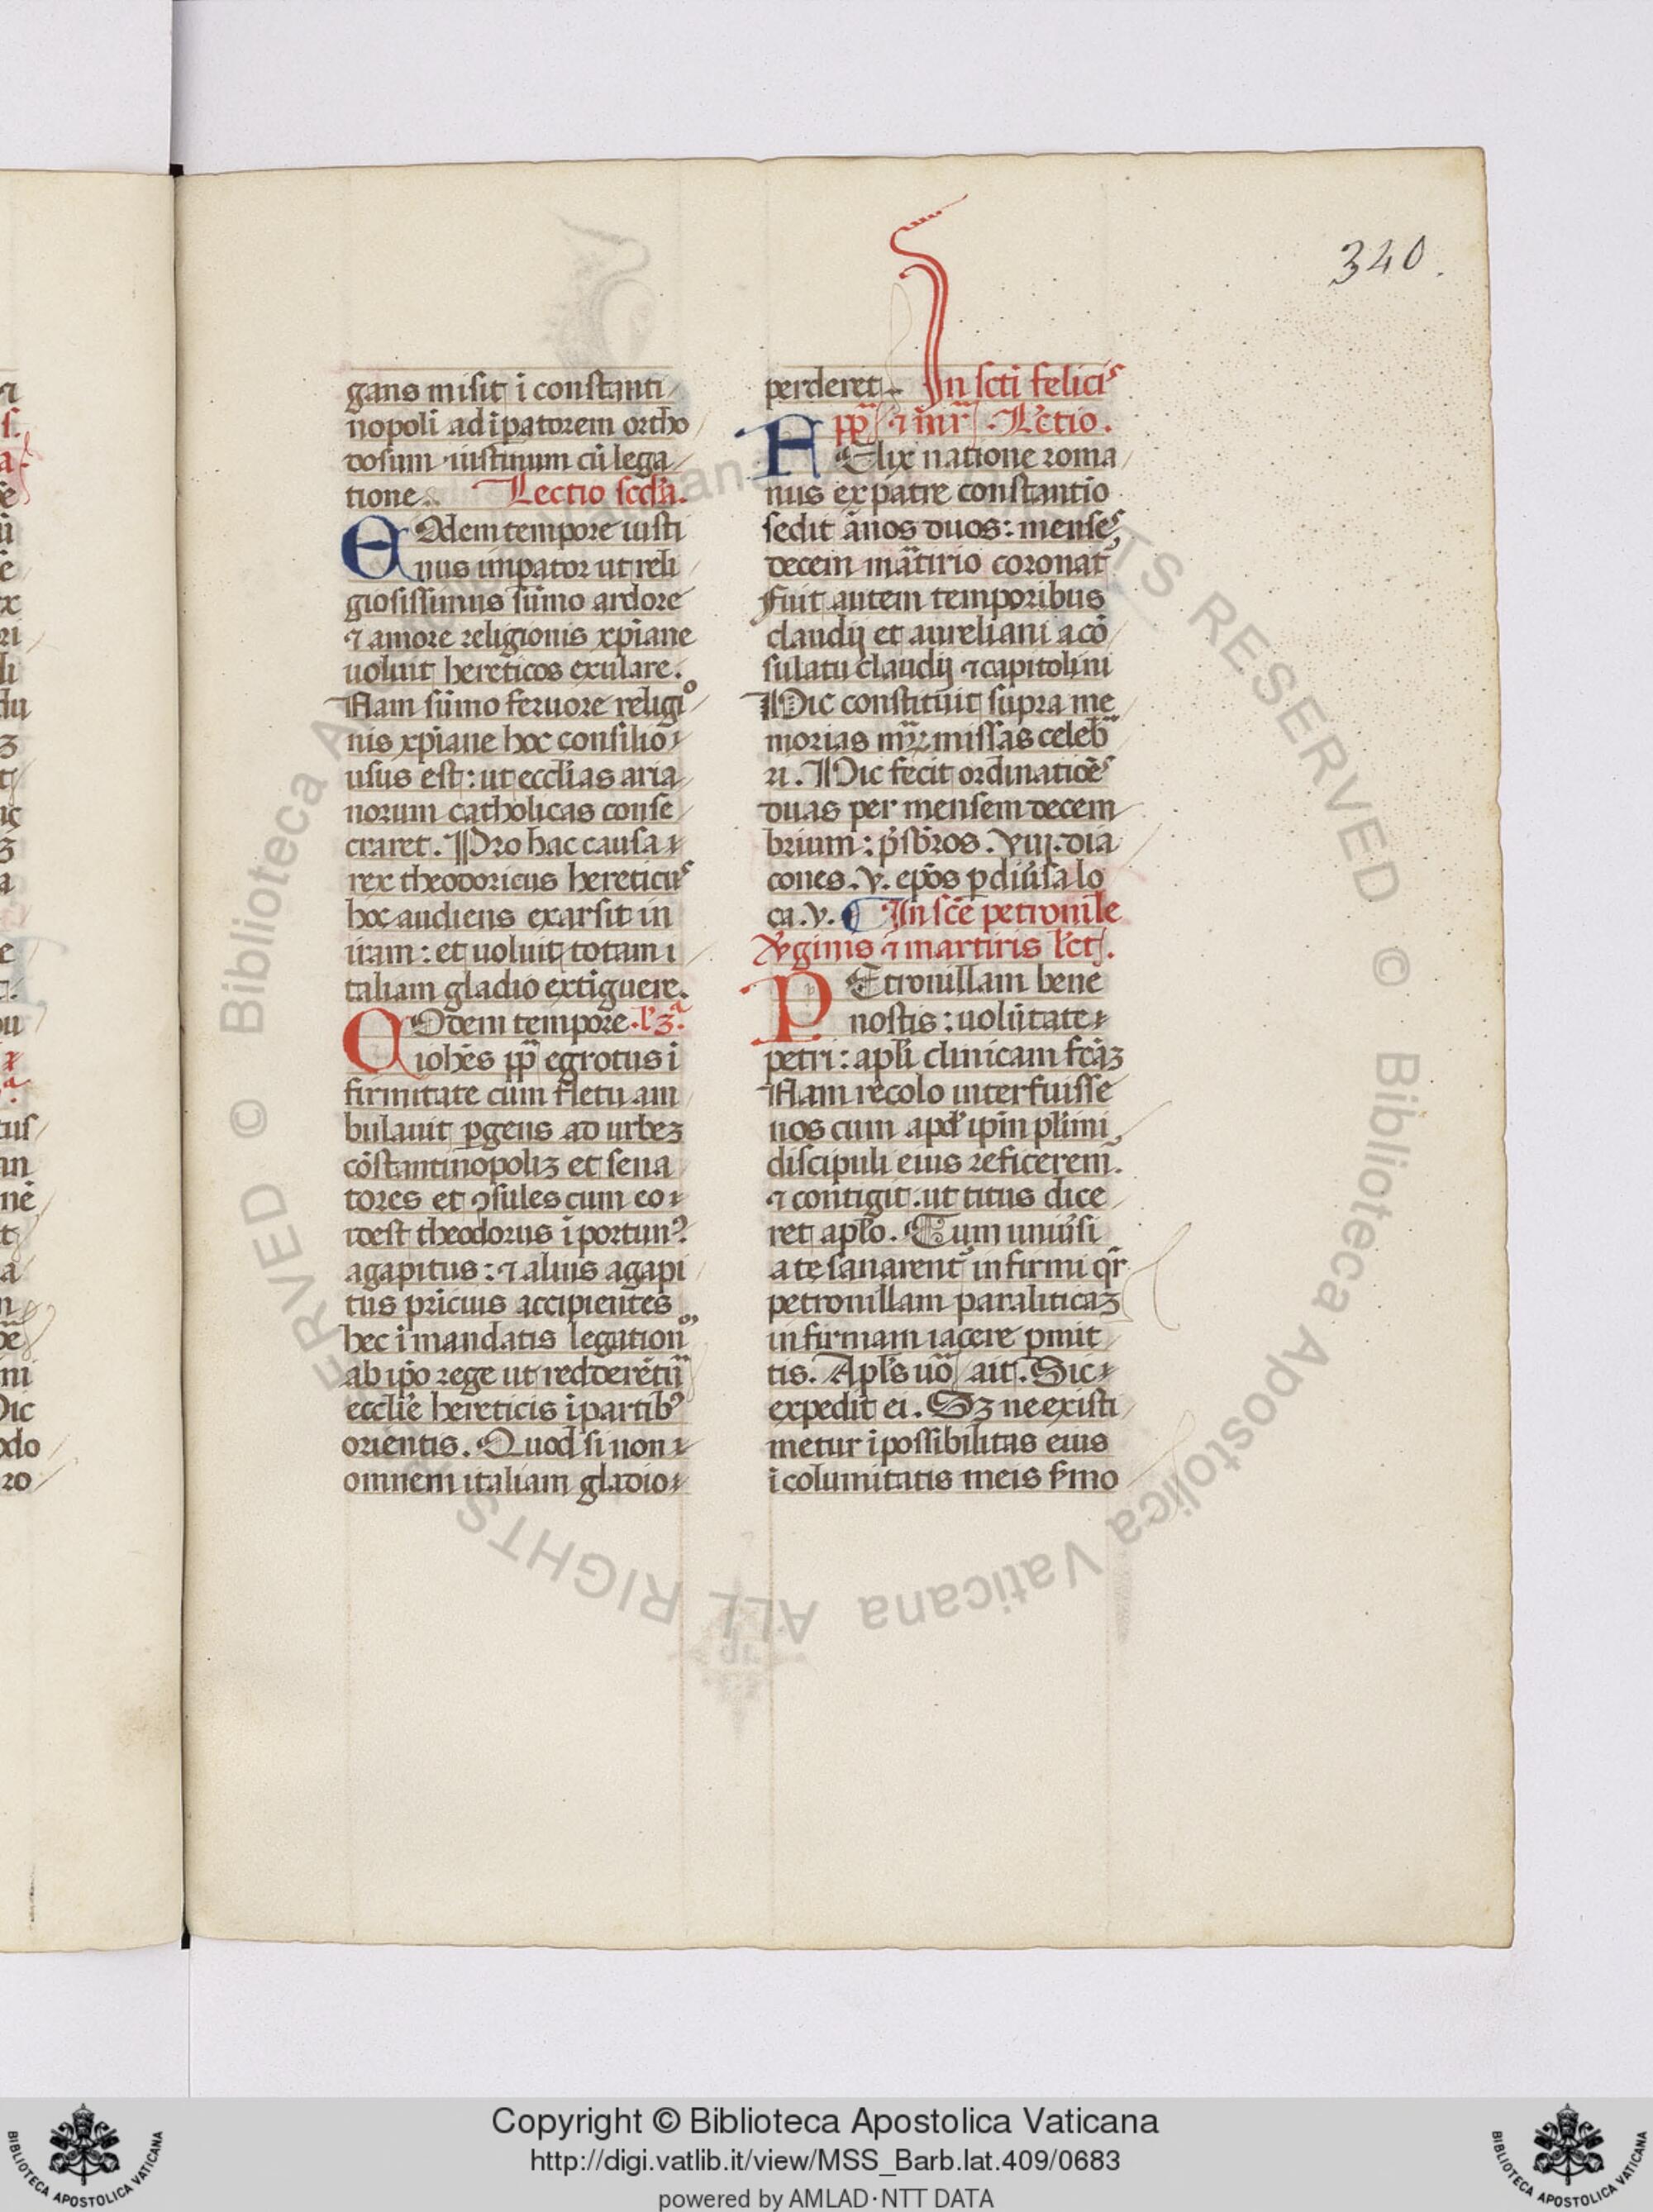 340.
gans misit ī constanti
nopoli ad īpatorem ortho
dosum iustinum cū lega
tione. Lectio scđa.
EOdem tempore iusti
nus impator ut reli
giosissimus sūmo ardore
⁊ amore religionis xp̄iane
uoluit hereticos exulare.
Nam sūmo feruore religio
nis xp̄iane hoc consilio
usus est: ut ecclīas aria
norum catholicas conse
craret. Pro hac causa
rex theodoricus hereticus
hoc audiens exarsit in
iram: et uoluit totam i
taliam gladio extīguere.
EOdem tempore. l'3ᵃ.
ioh̄es pp̄ egrotus ī
firmitate cum fletu am
bulauit ꝑgens ad urbeꝫ
cōstantinopoliꝫ et sena
tores et ꝯsules cum eo
idest theodorus īportunꝰ.
agapitus: ⁊ alius agapi
tus pricius accipientes
hec ī mandatis legation
ab ip̄o rege ut redderētur
ecclīe hereticis ī partibꝰ
orientis. Quod si non
omnem italiam gladio
perderet. In scti felicis
pp̄ ⁊ mr̄. Lctio.
FElix natione roma
nus ex patre constantio
sedit ānos duos: menses
decem martirio coronat
Fuit autem temporibus
claudij et aureliani a cō
sulatu claudij ⁊ capitolini
Hic constituit supra me
morias mr̄ꝝ missas celebra
ri. Hic fecit ordinatiōes
duas per mensem decem
brium: p̄sbr̄os. viij. dia
cones. v. ep̄os p diūsa lo
ca. v. In scē petronile
v̄ginis ⁊ martiris lct̄.
PEtronillam bene
nostis: uolūtate
petri: apl̄i clinicam fc̄aꝫ
Nam recolo interfuisse
uos cum apđ ip̄m pl̄imi
discipuli eius reficerem̄.
⁊ contigit. ut titus dice
ret apl̄o. Cum uniūsi
a te sanarent̄ infirmi qr̄
petronillam paraliticaꝫ
infirmam iacere ꝑmit
tis. Apl̄s uō ait. Sic
expedit ei. Sꝫ ne existi
metur īpossibilitas eius
īcolumitatis meis s̄mo
© Biblioteca Apostolica Vaticana ALL RIGHTS RESERVED © Biblioteca Apostolica Vaticana ALL RIGHTS RESERVED
Copyright © Biblioteca Apostolica Vaticana
http://digi.vatlib.it/view/MSS_Barb.lat.409/0683
powered by AMLAD·NTT DATA
BIBLIOTECA APOSTOLICA VATICANA
BIBLIOTECA APOSTOLICA VATICANA